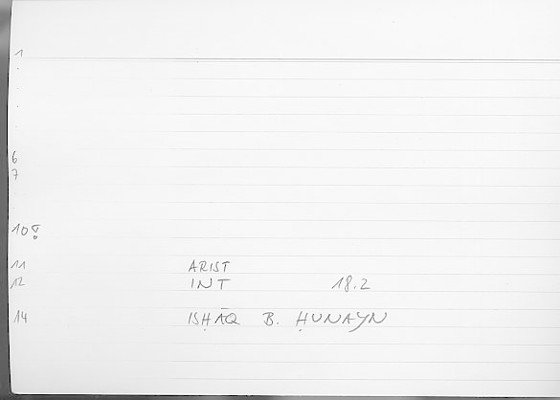 1
6
7
10
11 ARIST
12 INT 18.2
14 ISḤĀQ B. ḤUNAYN